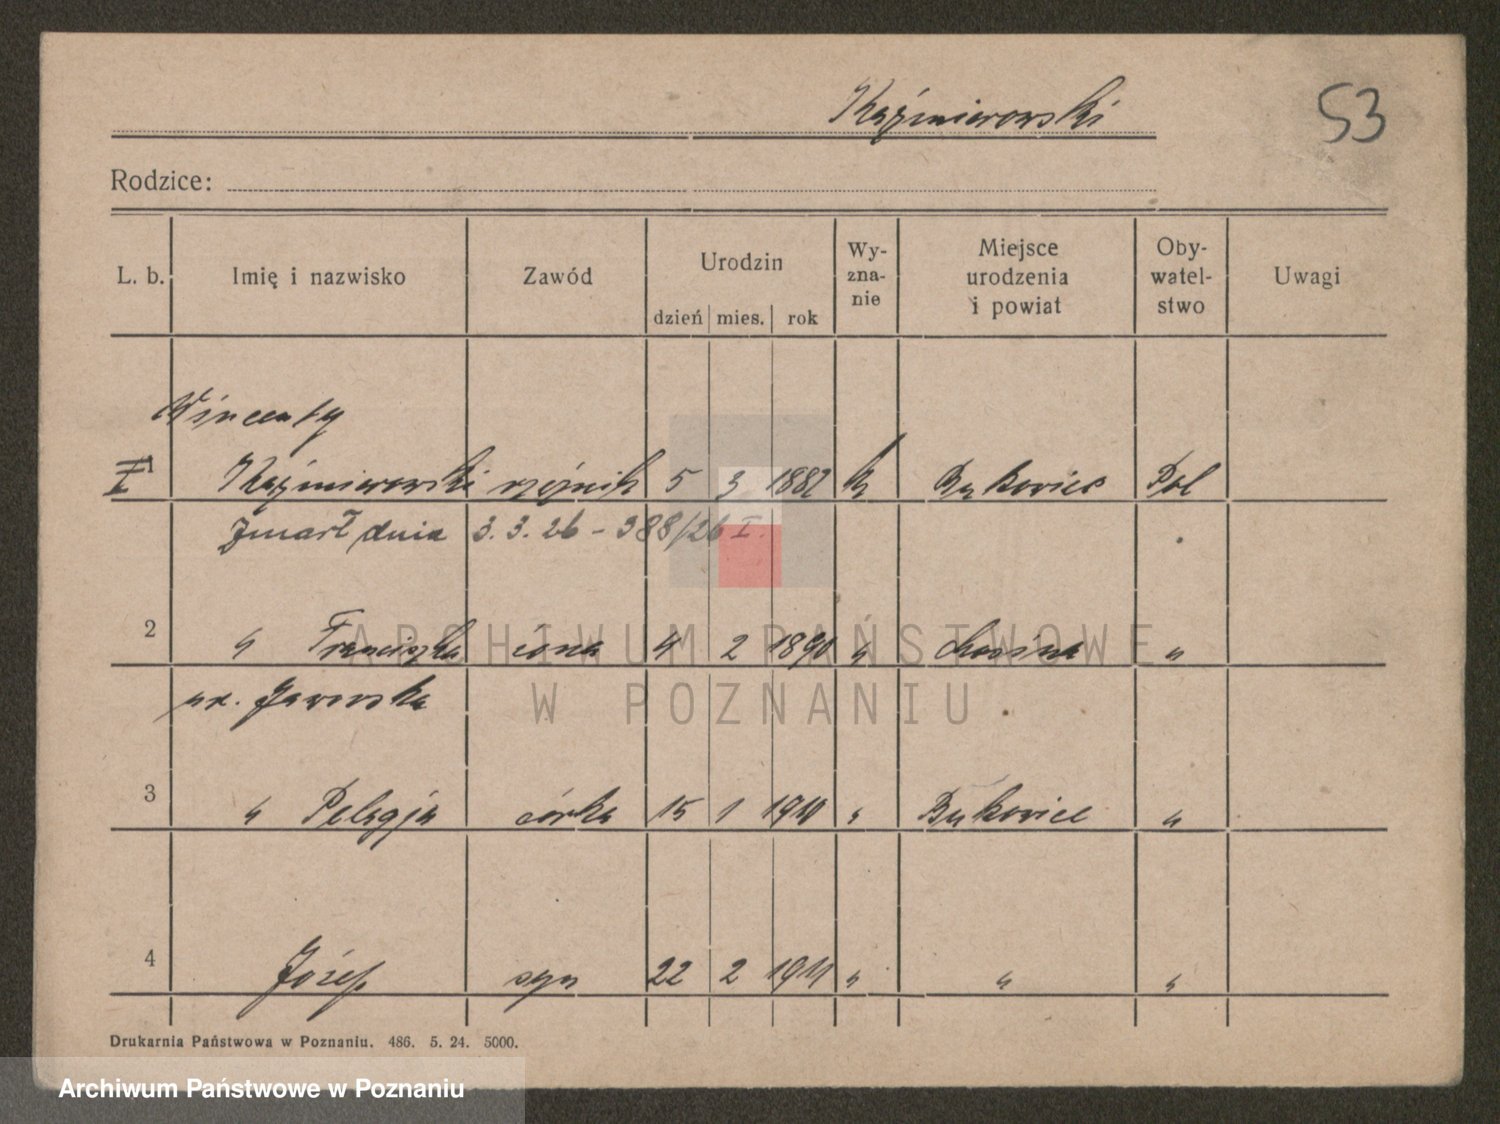 Kaźmierowski
53
Rodzice:
L. b. Imię i nazwisko Zawód Urodzin dzień mies. rok Wy-zna-nie Miejsce urodzenia i powiat Oby-watel-stwo Uwagi
Wincenty
1 Kaźmierowski rzeźnik 5 3 1882 k Bukowiec Pol
Zmarł dnia 3. 3. 26 - 388/26 I.
2 " Franciszka żona 4 2 1890 " "
ur. Jaworska
3 " Pelagja córka 15 1 " Bukowiec "
4 Józef syn 22 2 1911 " " "
Drukarnia Państwowa w Poznaniu. 486. 5. 24. 5000.
ARCHIWUM PAŃSTWOWE
W POZNANIU
Archiwum Państwowe w Poznaniu